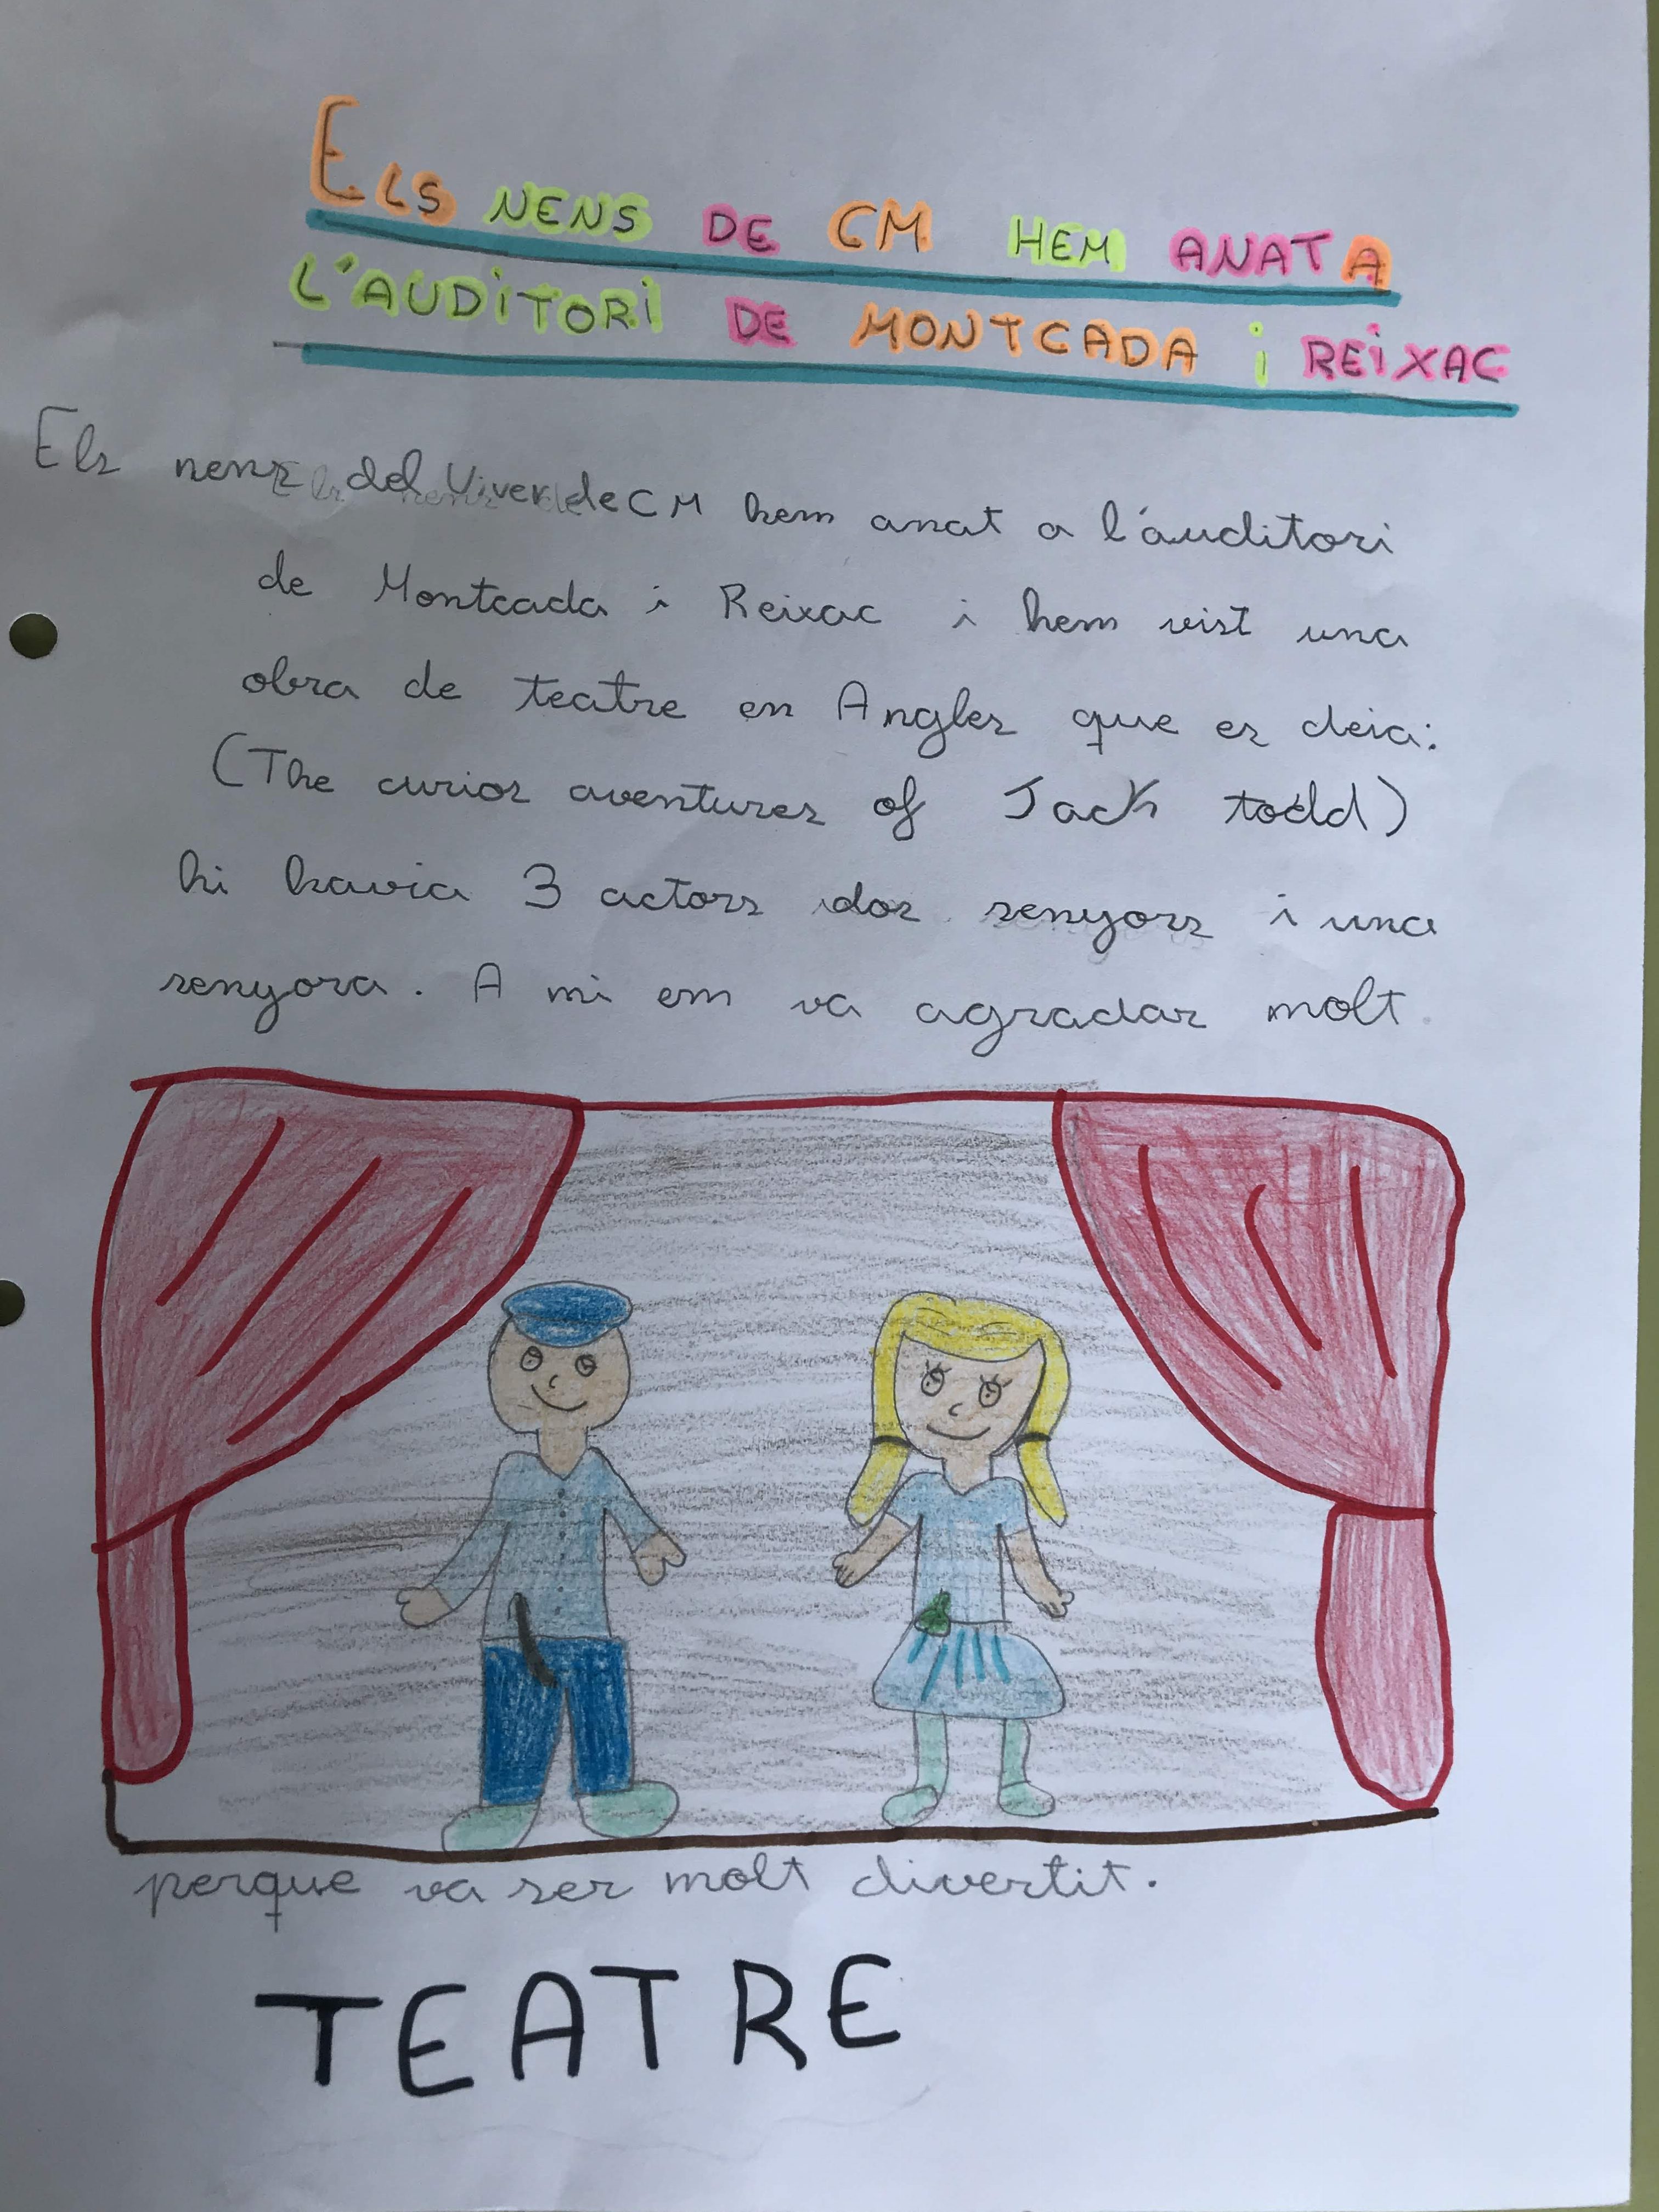 ELS NENS DE CM HEM ANAT A
L'AUDITORI DE MONTCADA i REiXAC
Els nens del Viver de CM hem anat a l'auditori
de Montcada i Reixac i hem vist una
obra de teatre en Angles que es deia:
(The curios aventures of Jack todd)
hi havia 3 actors dos senyors i una
senyora. A mi em va agradar molt
perque va ser molt divertit.
TEATRE